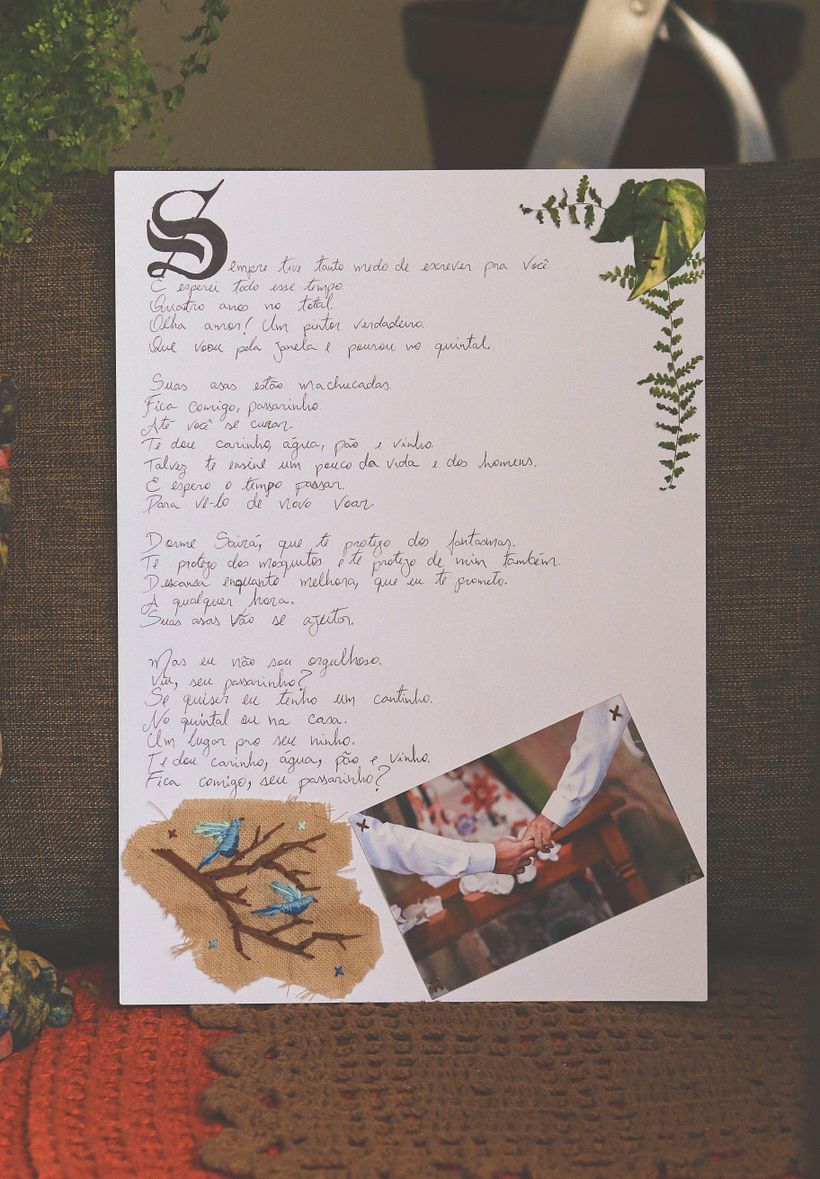 Sempre tive tanto medo de escrever pra você
E esperei todo esse tempo.
Quatro anos no total.
Olha amor! Um pintor verdadeiro.
Que voou pela janela e pousou no quintal.
Suas asas estão machucadas.
Fica comigo, passarinho.
Até você se curar.
Te dou carinho, água, pão e vinho.
Talvez te ensine um pouco da vida e dos homens.
E espero o tempo passar.
Para vê-lo de novo voar.
Dorme Sairá, que te protejo dos fantasmas.
Te protejo dos mosquitos e te protejo de mim também.
Descansa enquanto melhora, que eu te prometo.
A qualquer hora.
Suas asas vão se ajeitar.
Mas eu não sou orgulhoso.
Viu, seu passarinho?
Se quiser eu tenho um cantinho.
No quintal ou na casa.
Um lugar pro seu ninho.
Te dou carinho, água, pão e vinho.
Fica comigo, seu passarinho?